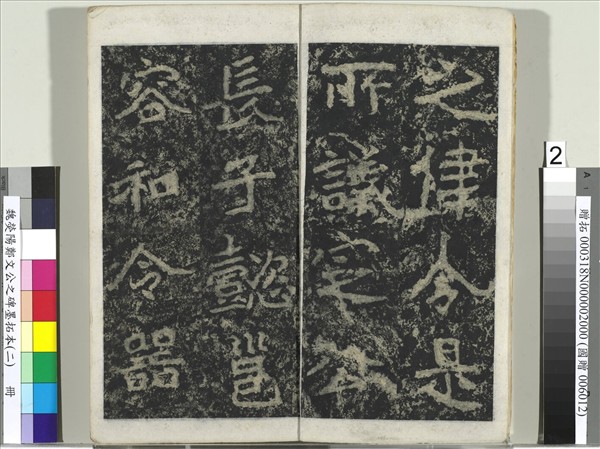 之律令是
所議定
長子懿邕
容和令器
魏滎陽鄭文公之碑墨拓本(二) 冊
2
贈拓 000318N000002000 (國贈 006012)